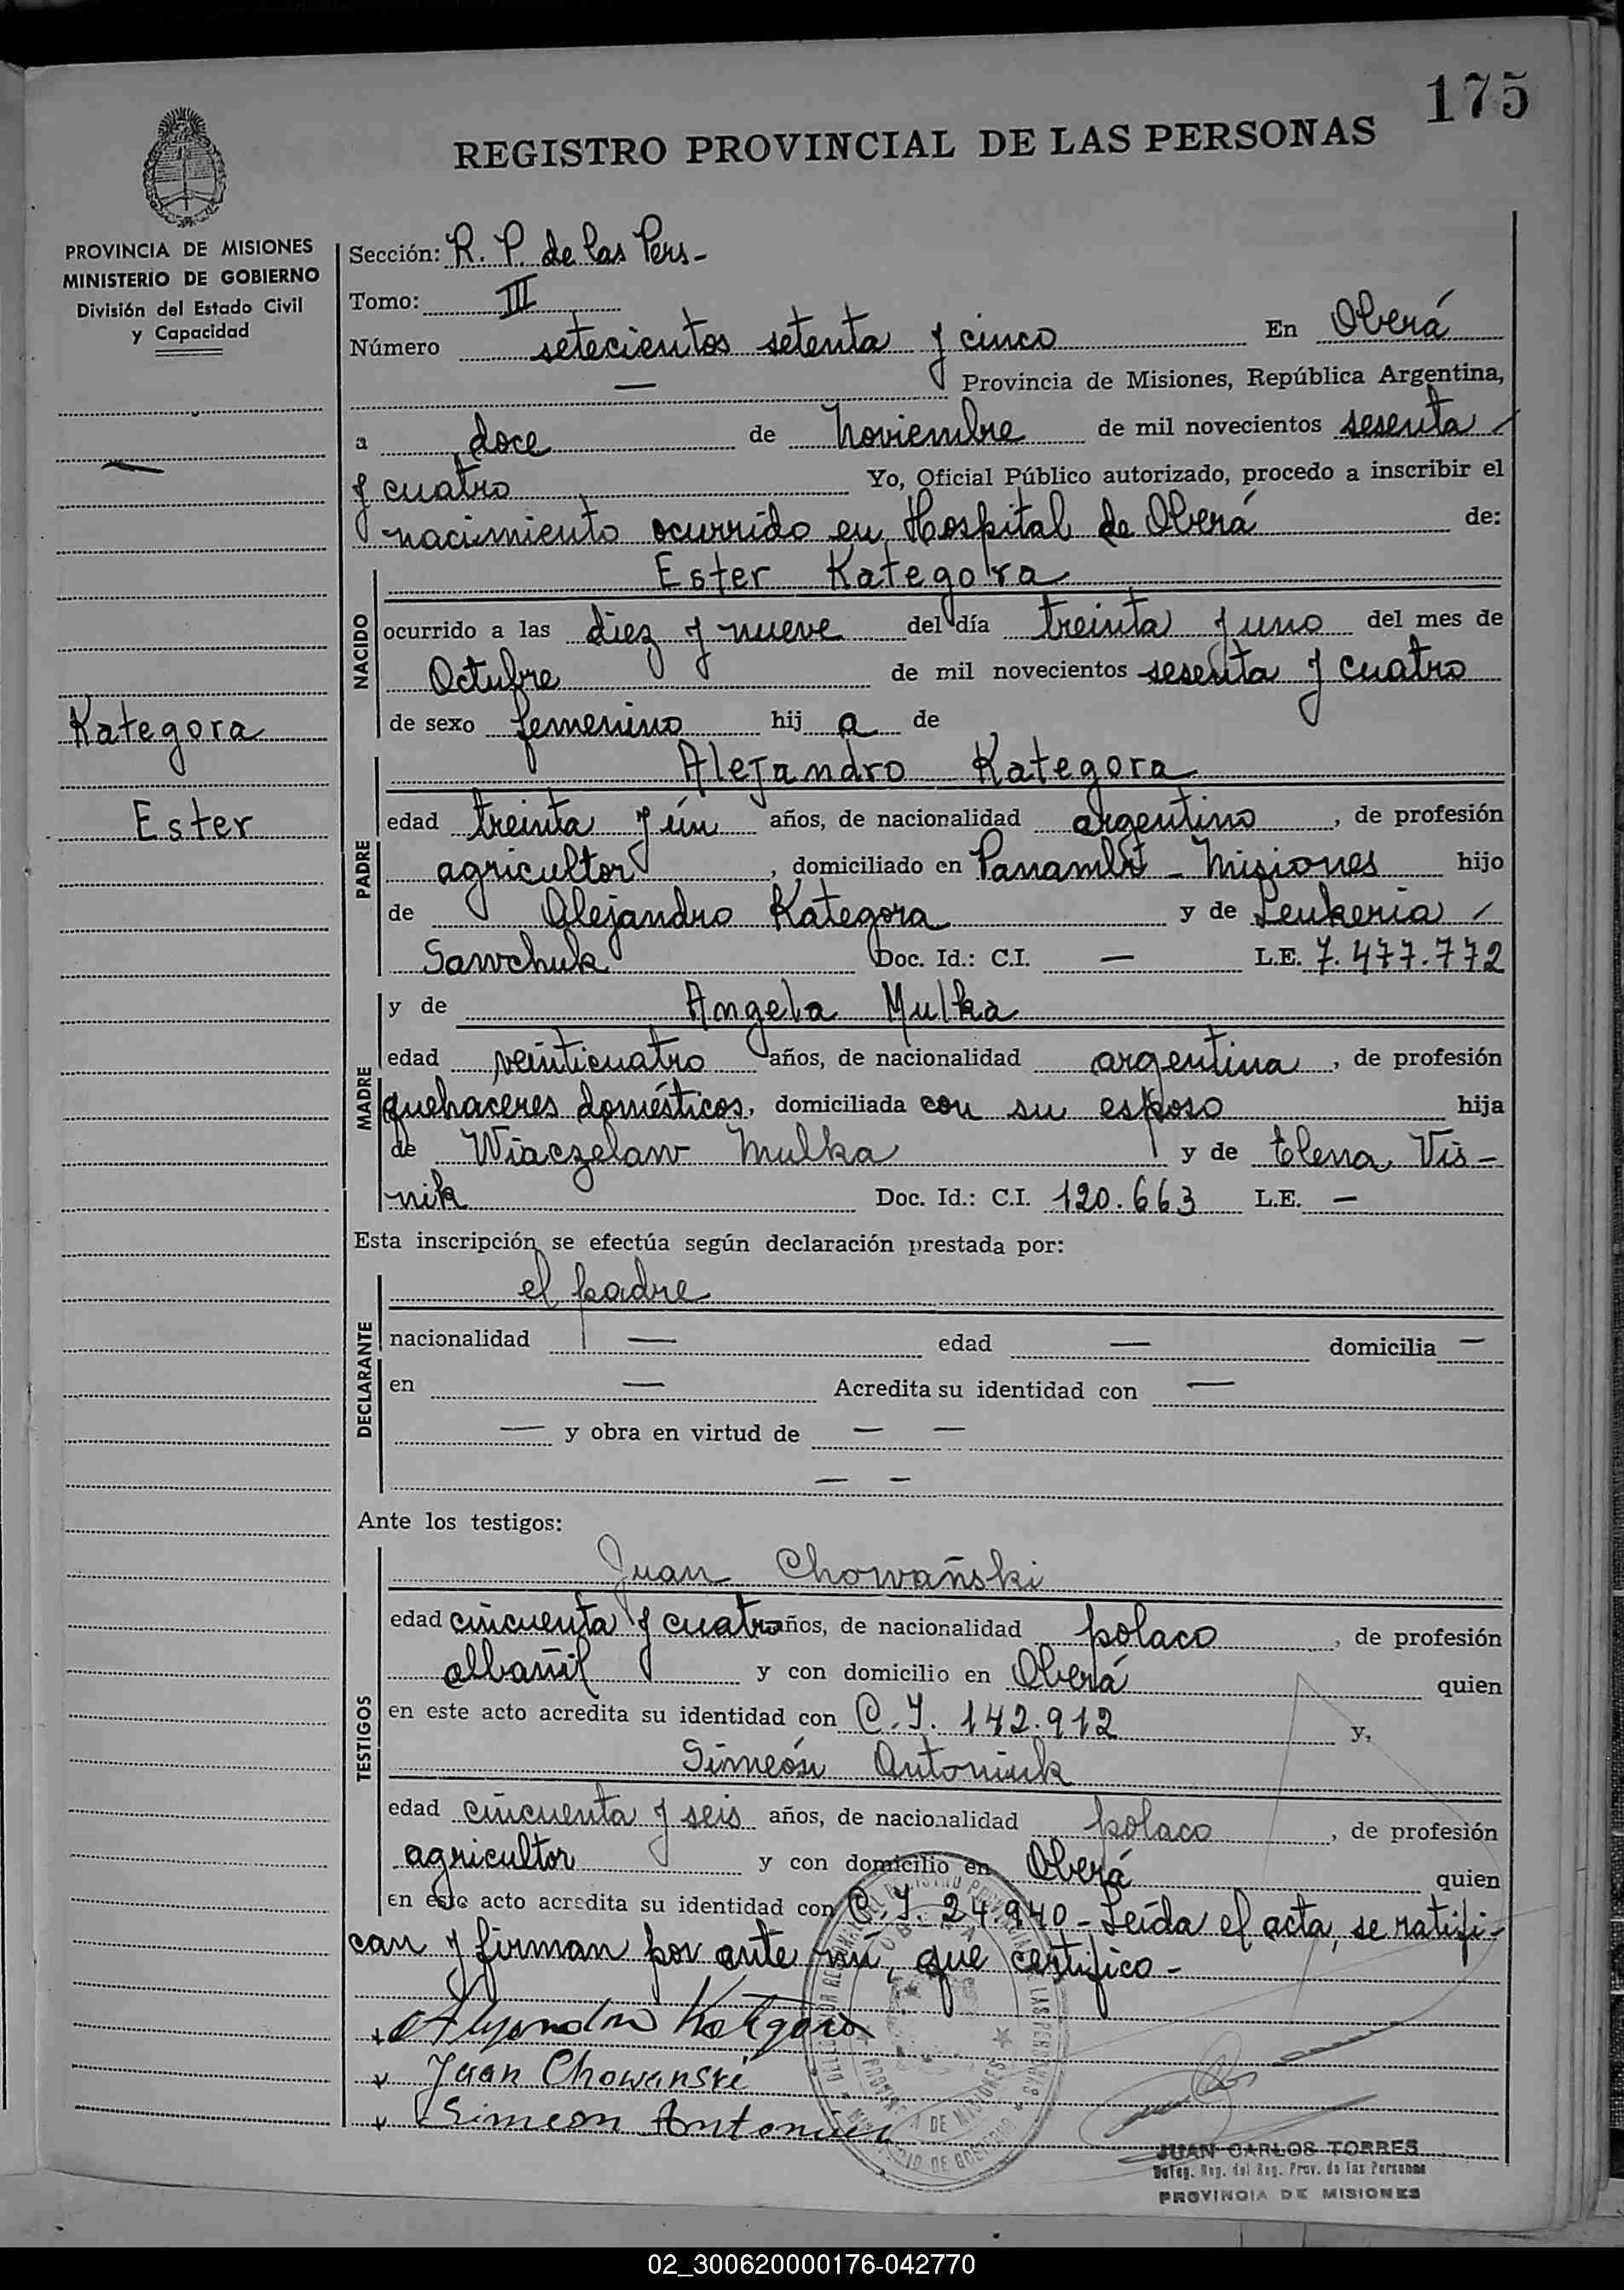 175
REGISTRO PROVINCIAL DE LAS PERSONAS
PROVINCIA DE MISIONES
MINISTERIO DE GOBIERNO
División del Estado Civil
y Capacidad
Kategora
Ester
Sección: R. P. de las Pers-
Tomo: III
Número setecientos setenta y cinco En Oberá
— Provincia de Misiones, República Argentina,
a doce de Noviembre de mil novecientos sesenta
y cuatro Yo, Oficial Público autorizado, procedo a inscribir el
nacimiento ocurrido en Hospital de Oberá de:
NACIDO
Ester Kategora
ocurrido a las diez y nueve del día treinta y uno del mes de
Octubre de mil novecientos sesenta y cuatro
de sexo femenino hij a de
PADRE
Alejandro Kategora
edad treinta y ún años, de nacionalidad argentino, de profesión
agricultor, domiciliado en Panambí - Misiones hijo
de Alejandro Kategora y de Leukeria
Sawchuk Doc. Id.: C.I. — L.E. 7.477.772
MADRE
y de Angela Mulka
edad veinticuatro años, de nacionalidad argentina, de profesión
quehaceres domésticos, domiciliada con su esposo hija
de Wiaczelaw Mulka y de Elena Vis-
nik Doc. Id.: C.I. 120.663 L.E. —
Esta inscripción se efectúa según declaración prestada por:
DECLARANTE
el padre
nacionalidad — edad — domicilia —
en — Acredita su identidad con —
— y obra en virtud de — —
— —
Ante los testigos:
TESTIGOS
Juan Chowañski
edad cincuenta y cuatro años, de nacionalidad polaco, de profesión
albañil y con domicilio en Oberá quien
en este acto acredita su identidad con C.I. 142.912 y,
Simeón Antoniuk
edad cincuenta y seis años, de nacionalidad polaco, de profesión
agricultor y con domicilio en Oberá quien
en este acto acredita su identidad con C.I. 24.940 - Leída el acta, se ratifi-
can y firman por ante mí, que certifico -
Alejandro Kategora
Juan Chowanski
Simeon Antoniuk
PROVINCIA DE MISIONES
MINISTERIO DE GOBIERNO
JUAN CARLOS TORRES
Deleg. Reg. del Reg. Prov. de las Personas
PROVINCIA DE MISIONES
02_300620000176-042770